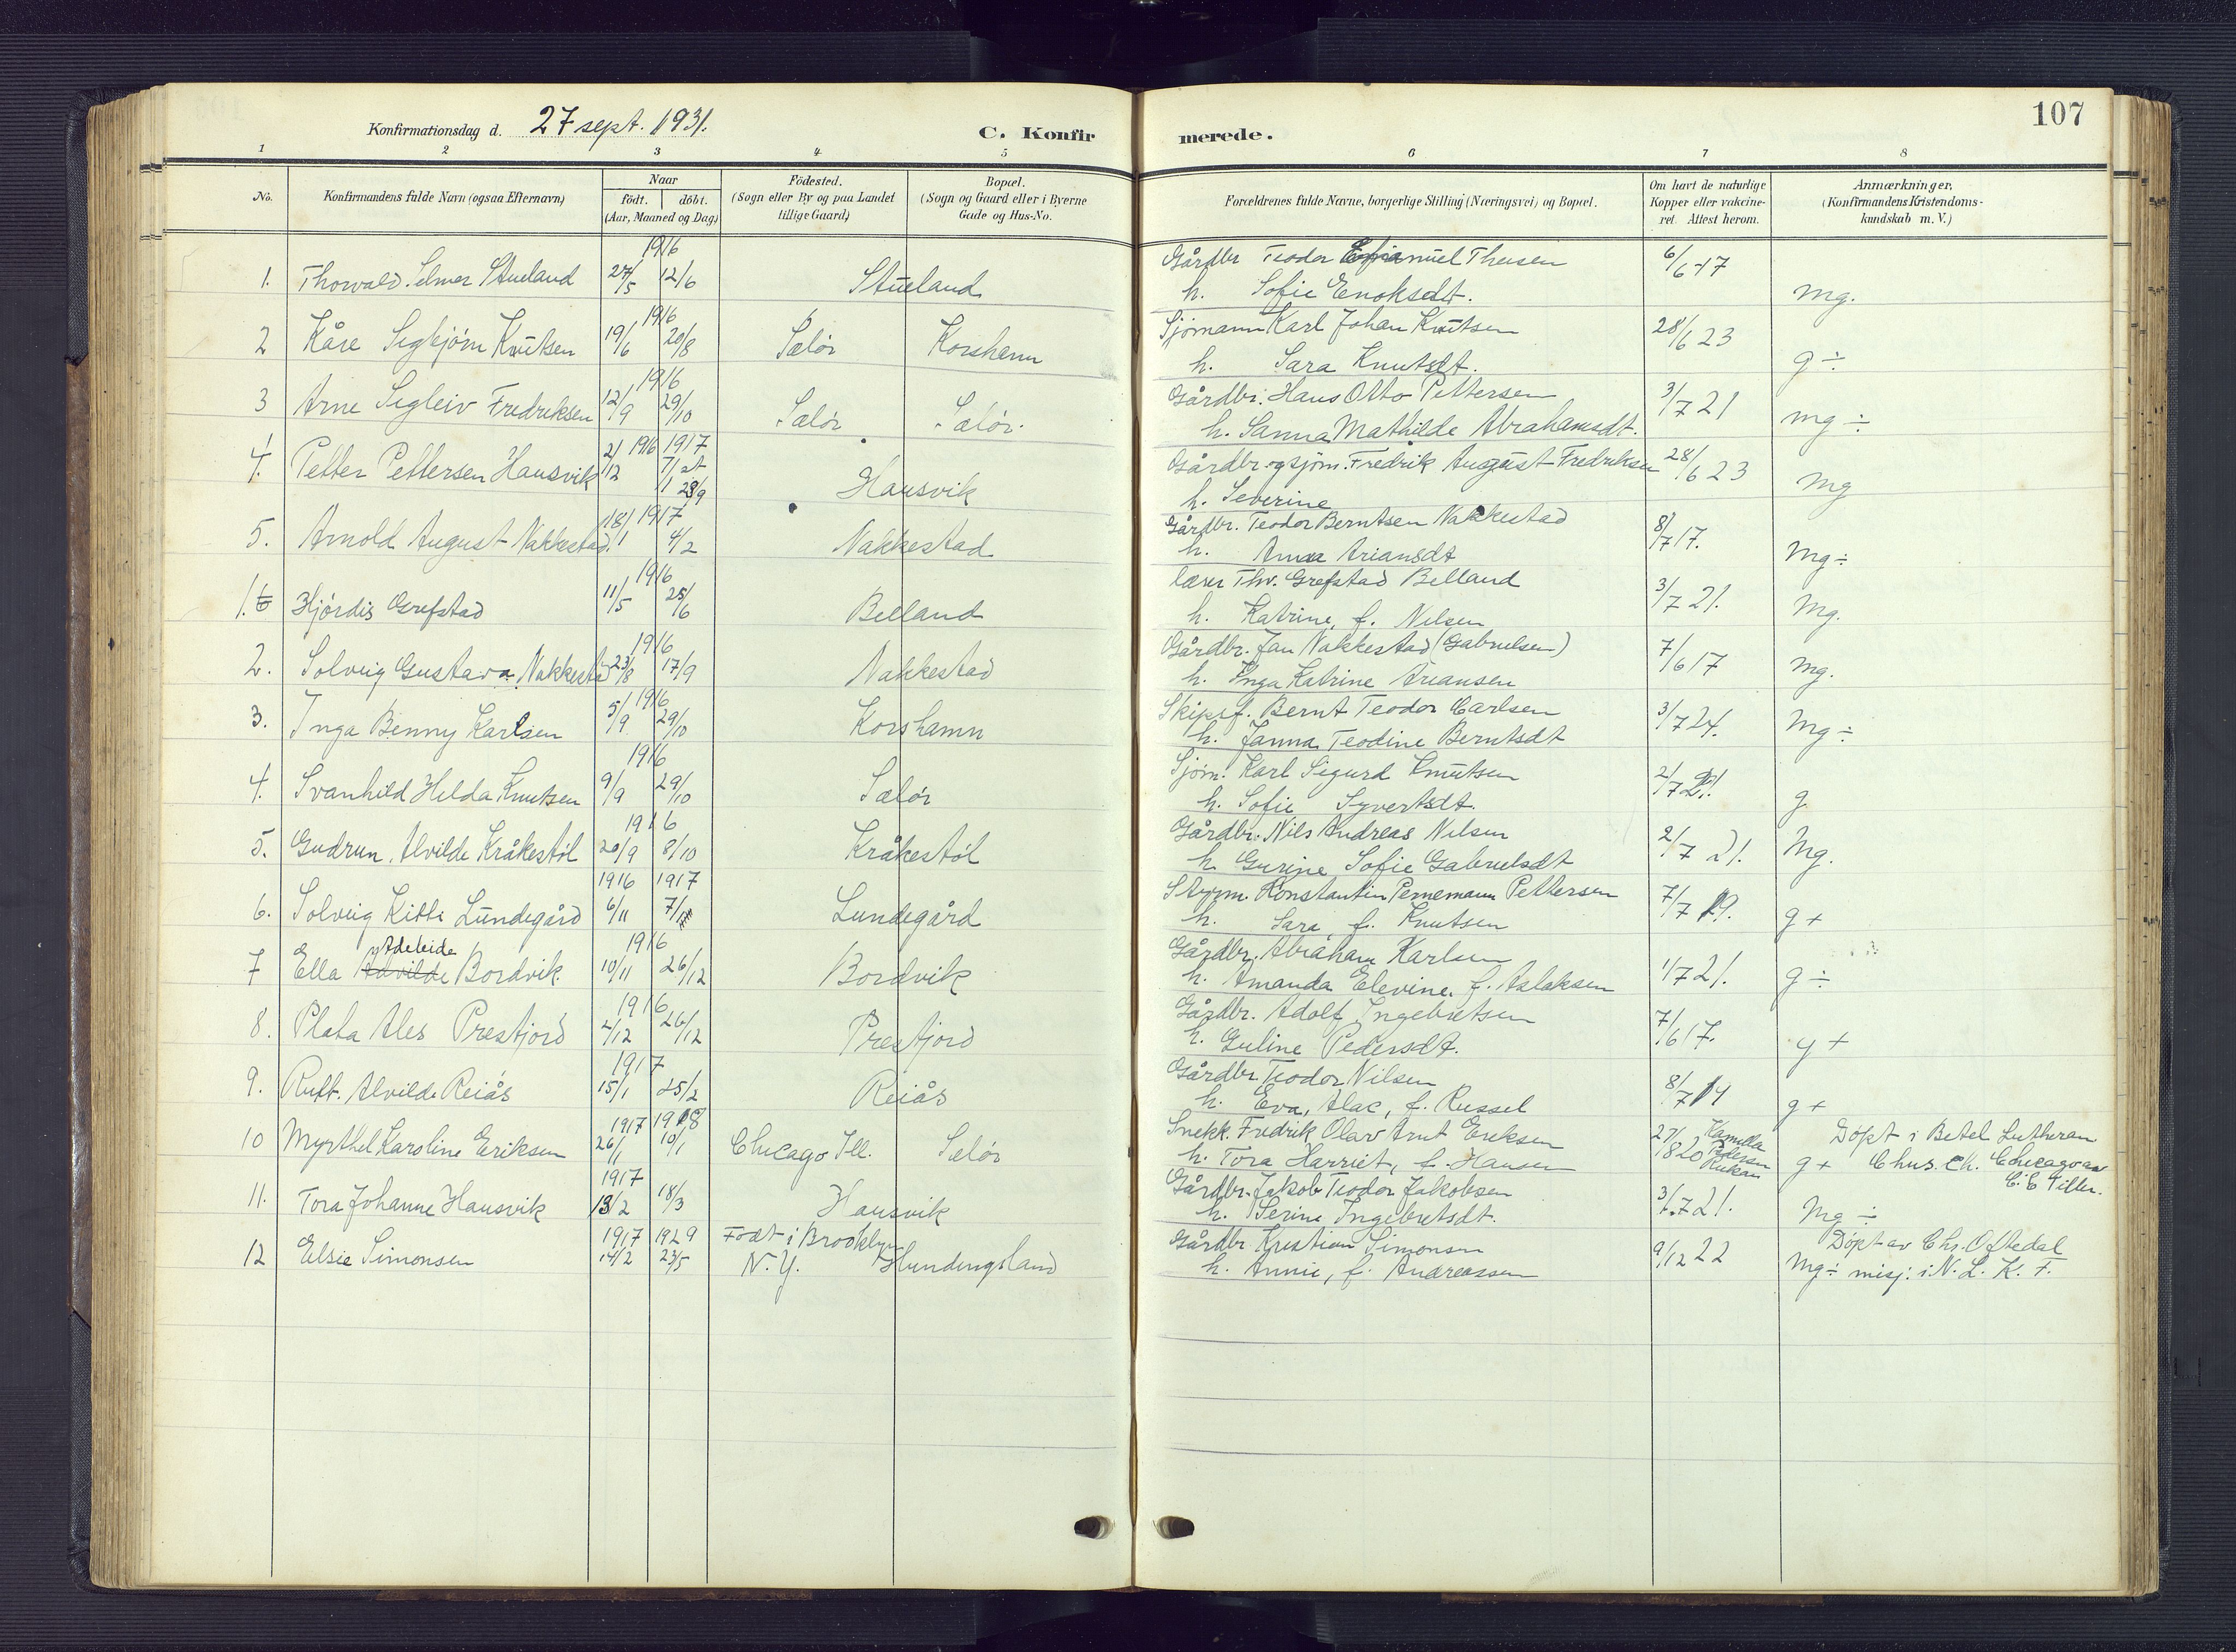 107
Konfirmationsdag d. 27 sept. 1931.
C. Konfirmerede.
1 2 3 4 5 6 7 8
No.
Konfirmandens fulde Navn (ogsaa Efternavn)
Naar
födt. döbt.
(Aar, Maaned og Dag)
Födested.
(Sogn eller By og paa Landet
tillige Gaard)
Bopæl.
(Sogn og Gaard eller i Byerne
Gade og Hus-No.
Forældrenes fulde Navne, borgerlige Stilling (Næringsvei) og Bopæl.
Om havt de naturlige
Kopper eller vakcine-
ret. Attest herom.
Anmærkninger.
(Konfirmandens Kristendoms-
kundskab m. V.)
1916
1. Thorvald Selmer Stueland 27/5 12/6 Stueland
Gårdbr Teodor Emanuel Theisen 6/6 17
h. Sofie Enoksdt. mg.
1916
2 Kåre Sigbjørn Knutsen 19/6 20/8 Sælør Korshamn
Sjømann Karl Johan Knutsen 28/6 23
h. Sara Knutsdt. g ÷
1916
3 Arne Sigleiv Fredriksen 12/9 29/10 Sælør Sælør
Gårdbr. Hans Otto Pettersen 3/7 21
h. Sanna Mathilde Abrahamsdt. mg ÷
1916 1917
4. Petter Pettersen Hausvik 2/12 7/1 st 23/9 Hausvik
Gårdbr. og sjøm. Fredrik August Fredriksen 28/6 23
h. Severine mg
1917
5. Arnold August Nakkestad 18/1 4/2 Nakkestad
Gårdbr. Teodor Berntsen Nakkestad 8/7 17.
h. Anna Ariansdt Mg ÷
1916
1. Hjørdis Grefstad 11/5 25/6 Belland
lærer Thv. Grefstad Belland 3/7 21.
h. Katrine, f. Nilsen Mg.
1916
2. Solveig Gustava Nakkestad 23/8 17/9 Nakkestad
Gårdbr. Jan Nakkestad (Gabrielsen) 7/6 17
h. Inga Katrine Ariansen mg.
1916
3. Inga Benny Karlsen 5/9 29/10 Korshamn
Skipsf. Bernt Teodor Carlsen 3/7 24.
h. Janna Teodine Berntsdt Mg ÷
1916
4. Svanhild Helda Knutsen 9/9 29/10 Sælør
Sjøm. Karl Sigurd Knutsen 2/7 21.
h. Sofie Syvertsdt. g
1916
5. Gudrun Alvilde Kråkestøl 20/9 8/10 Kråkestøl
Gårdbr. Nils Andreas Nilsen 2/7 21.
h. Gurine Sofie Gabrielsdt Mg.
1916 1917
6. Solveig Kitti Lundegård 6/11 7/1 Lundegård
Styrm. Konstantin Pernemann Pettersen 7/7 19.
h. Sara, f. Knutsen g +
Adeleide 1916
7 Ella Alvilde Bordvik 10/11 26/12 Bordvik
Gårdbr. Abraham Karlsen 1/7 21.
h. Amanda Elevine, f. Aslaksen g ÷
1916
8. Plata Ales Prestjord 2/12 26/12 Prestjord
Gårdbr. Adolf Ingebretsen 7/6 17.
h. Guline Pedersdt. g +
1917
9. Rutt. Alvilde Reiås 15/1 25/2 Reiås
Gårdbr Teodor Nilsen 8/7 14
h. Eva, Alac, f. Russel g +
1917 1918
10 Myrthel Karoline Eriksen 26/1 10/1 Chicago Ill. Sælør
Snekk. Fredrik Olav Arnt Eriksen 27/8 20 Kamilla Pedersen
h. Tora Harriet, f. Hansen g +
Døpt i Betel Lutheran
Chus. Ch. Chicago av
C. E Tiller.
1917
11. Tora Johanne Hausvik 13/2 18/3 Hausvik
Gårdbr. Jakob Teodor Jakobsen 3/7 21.
h. Serine Ingebretsdt. Mg ÷
1917 1929
12 Elsie Simonsen 14/2 23/5 Født i Brooklyn N.Y. Hundingsland
Gårdbr Kristian Simonsen 9/12 22
h. Annie, f. Andreassen Mg ÷
Døpt av Chr. Oftedal
misj. i N. L. K. F.